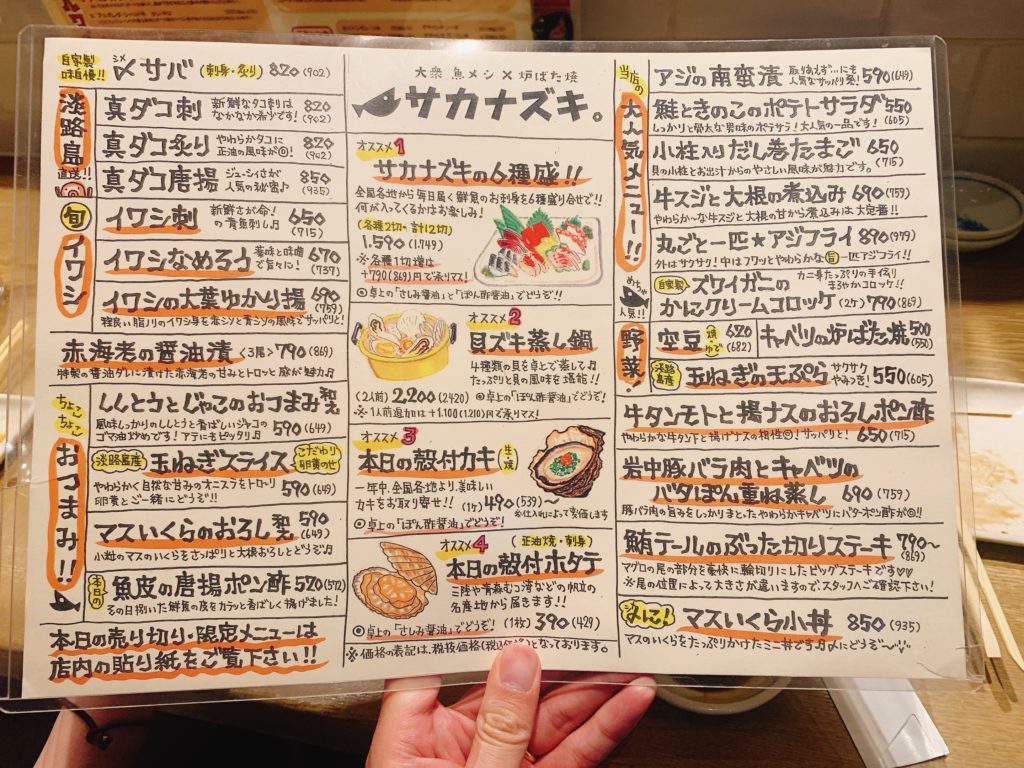 自家製
味自慢!!
シメ
〆サバ (刺身・炙り) 820 (902)
淡路島
直送!!
真ダコ刺 新鮮なタコ刺は
なかなか希少です! 820
(902)
真ダコ炙り やわらかタコに
正油の風味が◎! 820
(902)
真ダコ唐揚 ジューシィさが
人気の秘密♪ 850
(935)
旬
イワシ
イワシ刺 新鮮さが命!
の青魚刺し♫ 650
(715)
イワシなめろう 薬味と味噌
で気々に! 670
(737)
イワシの大葉ゆかり揚 690
(759)
程良い脂ノリのイワシ身を赤ジソと青ジソの風味でサッパリと!
赤海老の醤油漬 <3尾> 790 (869)
特製の醤油ダレに漬けた赤海老の甘みとトロッと感が魅力♫
ちょこ〜
ちょこ〜
おつまみ!!
ししとうとじゃこのおつまみ
風味しっかりのししとうと香ばしいジャコの
ゴマ油炒めです!アテにモピッタリ♫ 590 (649)
淡路島産 玉ねぎスライス こだわり
卵黄のせ
やわらかく自然な甘みのオニスラをトロ〜リ
卵黄とご一緒にどうぞ!! 590 (649)
マスいくらのおろし和え 590
(649)
小粒のマスのいくらをさっぱりと大根おろしとどうぞ♫
本日の
魚皮の唐揚ポン酢 520 (572)
その日捌いた鮮魚の皮をカラッと香ばしく揚げました!
本日の売り切り・限定メニューは
店内の貼り紙をご覧下さい!!
大衆 魚メシ×炉ばた焼
サカナズキ。
オススメ1
サカナズキの6種盛!!
全国各地から毎日届く鮮魚のお刺身を6種盛り合せで!!
何が入ってくるかはお楽しみ!
各種2切・計12切
1.590 (1.749)
※各種1切増は
+790(869)円で承リマス!
◎卓上の「さしみ醤油」と「ぽん酢醤油」でどうぞ!!
オススメ2
貝ズキ蒸し鍋
4種類の貝を卓上で蒸して♫
たっぷりと貝の風味を堪能!!
(2人前) 2,200 (2420) ◎卓上の「ぽん酢醤油」でどうぞ!
※1人前追加は+1.100(1.210)円で承リマス!
オススメ3
本日の殻付カキ 生・焼
一年中、全国各地より、美味しい
カキをお取り寄せ! (1ヶ) 490 (539)〜
※仕入れによって変価します
◎卓上の「ぽん酢醤油」でどうぞ!
オススメ4 (正油焼・刺身)
本日の殻付ホタテ
三陸や青森むつ湾などの帆立の
名産地から届きます!!
◎卓上の「さしみ醤油」でどうぞ! (1枚) 390 (429)
※価格の表記は、税抜価格(税込価格)となっております。
当店の
大人気メニュー!!
アジの南蛮漬 取りあえず…にも
人気なサッパリ系! 590 (649)
鮭ときのこのポテトサラダ 550
(605)
しっかりと骨太な男味のポテサラ!大人気の一品です!
小柱入りだし巻たまご 650
(715)
貝の小柱とお出汁からのやさしい風味が魅力です。
牛スジと大根の煮込み 690 (759)
やわらか〜な牛スジと大根の甘から煮込みは大定番!!
丸ごと一匹★アジフライ 890 (979)
外はサクサク!中はフワッとやわらかな旬一匹アジフライ!
めちゃ
人気!!
自家製 ズワイガニの カニ身たっぷりの手作り
まろやかコロッケ!!
かにクリームコロッケ (2ヶ) 790 (869)
野菜!
空豆 焼
ゆで 620
(682)
キャベツの炉ばた焼 500
(550)
淡路島産 玉ねぎの天ぷら サクサク
やみつき! 550 (605)
牛タンモトと揚げナスのおろしポン酢
やわらかな牛タン下と揚げナスの相性◎!サッパリと! 650 (715)
岩中豚バラ肉とキャベツの
バタぽん重ね蒸し 690 (759)
豚バラ肉の旨みをしっかりまとったやわらかキャベツにバターポン酢が◎!!
鮪テールのぶった切りステーキ 790〜
(869)
マグロの尾の部分を豪快に輪切りにしたビッグステーキです♡♡
※尾の位置によって大きさが違いますので、スタッフへご確認下さい!
ミニ! マスいくら小丼 850 (935)
マスのいくらをたっぷりかけたミニ丼です♫〆にどうぞ〜